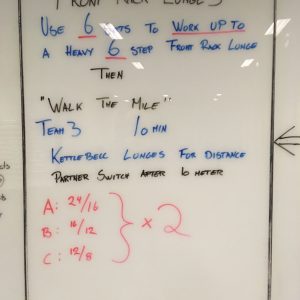 FRONT RACK LUNGES
USE 6 SETS TO WORK UP TO
A HEAVY 6 STEP FRONT RACK LUNGE
THEN
"WALK THE MILE"
TEAM 3 10 MIN
KETTLEBELL LUNGES FOR DISTANCE
PARTNER SWITCH AFTER 10 METER
A: 24/16
B: 16/12
C: 12/8
} x 2